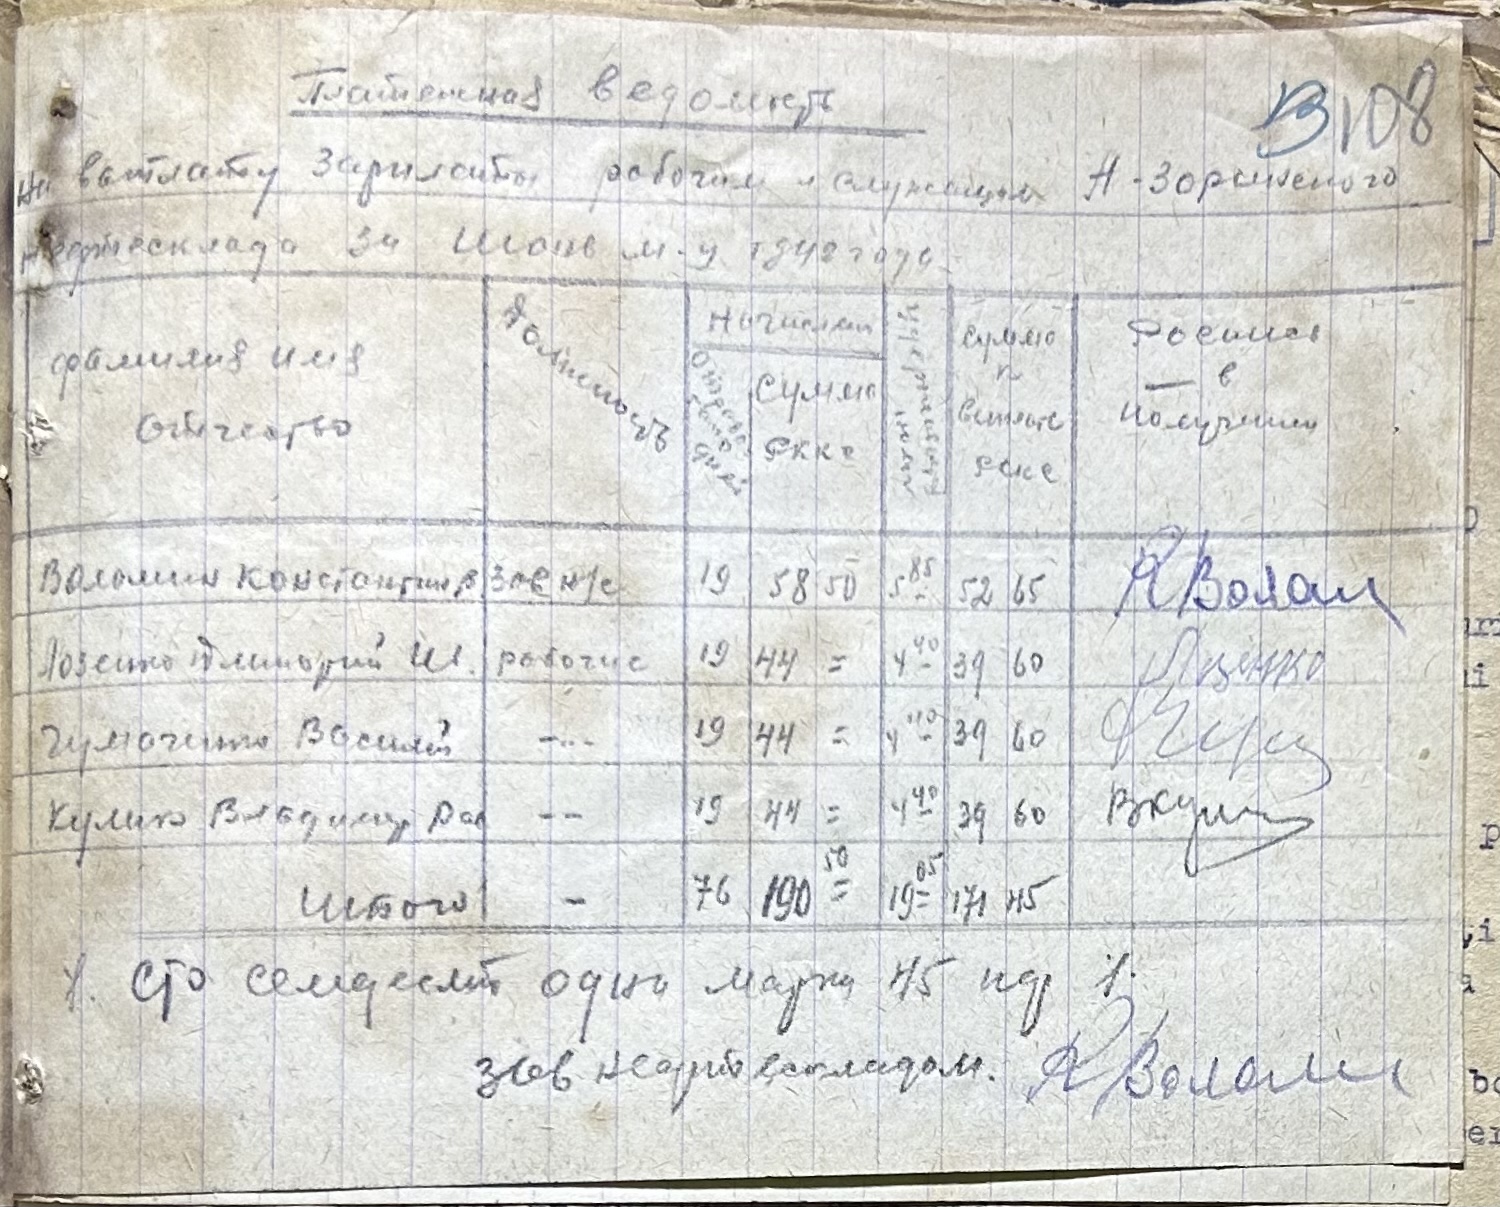 Платежная ведомость
В 108
на выплату Зарплаты рабочим и служащим Н-Зоринского
Нефтесклада За Июнь м-ц 1942 года
фамилия имя
Отчество
Должность
Начислен
Отработано дней
Сумма
РККС
Сумма
к
выплате
РККС
Роспись
в
получении
Воломин Константин В Зав н/с 19 58 50 5 85 52 65 КВолом
Дмитрий И. рабочие 19 44 = 4 40 39 60
Чумаченко Василий -"- 19 44 = 4 40 39 60
Кулико Владимир -"- 19 44 = 4 40 39 60 ВКули
Итого - 76 190 50 19 05 171 45
/. Сто семдесят одна марка 45 пф /.
Зав Нефтескладом. КВоломи